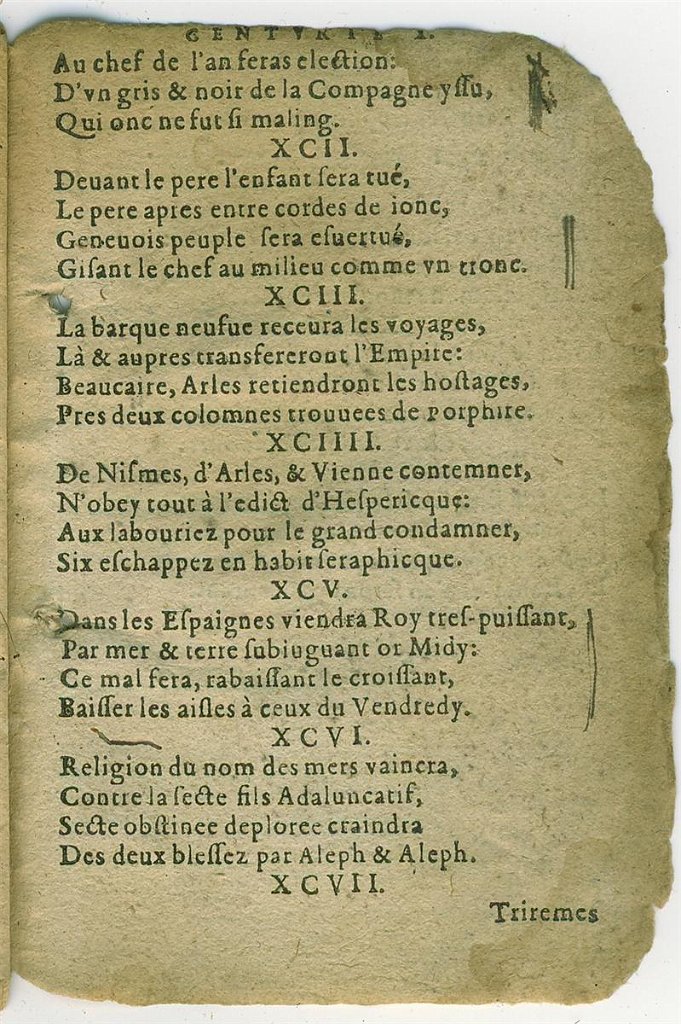 CENTVRIE I.
Au chef de l'an feras election:
D'vn gris & noir de la Compagne yſſu,
Qui onc ne fut ſi maling.
XCII.
Deuant le pere l'enfant ſera tué,
Le pere apres entre cordes de ionc,
Geneuois peuple ſera eſuertué,
Giſant le chef au milieu comme vn tronc.
XCIII.
La barque neufue receura les voyages,
Là & aupres transfereront l'Empire:
Beaucaire, Arles retiendront les hoſtages,
Pres deux colomnes trouuees de porphire.
XCIIII.
De Niſmes, d'Arles, & Vienne contemner,
N'obey tout à l'edict d'Heſpericque:
Aux labouriez pour le grand condamner,
Six eſchappez en habit ſeraphicque.
XCV.
Dans les Eſpaignes viendra Roy treſ-puiſſant,
Par mer & terre ſubiuguant or Midy:
Ce mal fera, rabaiſſant le croiſſant,
Baiſſer les aiſles à ceux du Vendredy.
XCVI.
Religion du nom des mers vaincra,
Contre la ſecte fils Adaluncatif,
Secte obſtinee deploree craindra
Des deux bleſſez par Aleph & Aleph.
XCVII.
Triremes